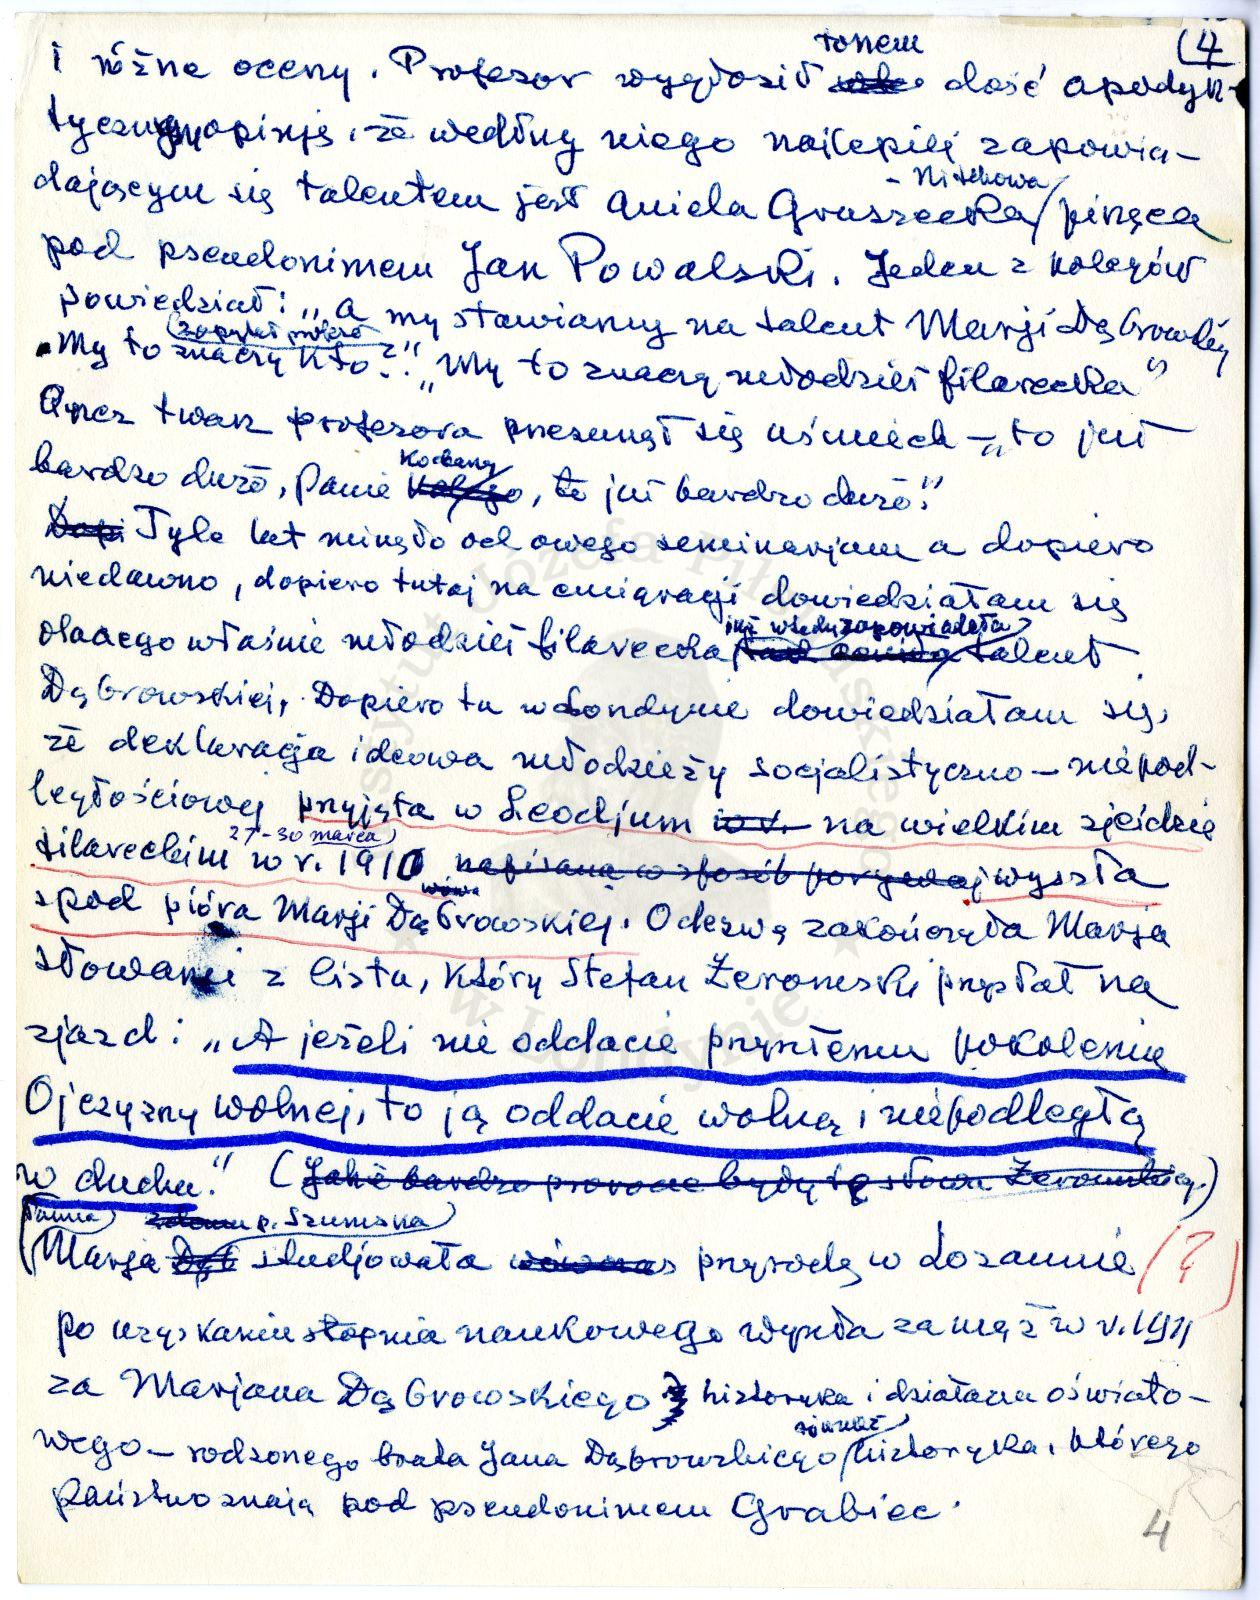 (4
tonem
i różne oceny. Profesor wygłosił dość apodyk-
tyczną opinję, że według niego najlepiej zapowia-
- Nitschowa
dającym się talentem jest Aniela Gruszecka/pisząca
pod pseudonimem Jan Powalski. Jeden z kolegów
powiedział: „a my stawiamy na talent Marji Dąbrowskiej
(zapytał profesor
„My to znaczy kto?" „My to znaczy młodzież filarecka"
Przez twarz profesora przesunął się uśmiech – „to jest
Kochany
bardzo dużo, Panie Kolego, to jest bardzo dużo."
Dopi Tyle lat minęło od owego seminarjum a dopiero
niedawno, dopiero tutaj na emigracji dowiedziałam się
już wtedy zapowiadała
dlaczego właśnie młodzież filarecka talent
Dąbrowskiej. Dopiero tu w Londynie dowiedziałam się,
że deklaracja ideowa młodzieży socjalistyczno – niepod-
ległościowej przyjęta w Leodjum w r. na wielkim zjeździe
27-30 marca)
filareckim w r. 1910 napisana w sposób porywający wyszła
spod pióra Marji Dąbrowskiej. Odezwę zakończyła Marja
słowami z listu, który Stefan Żeromski przysłał na
zjazd: „A jeżeli nie oddacie przyszłemu pokoleniu
Ojczyzny wolnej, to ją oddacie wolną i niepodległą
w duchu." (Jakże bardzo prorocze były te słowa Żeromskiego.)
panna) p. Szumska
(Marja Dąb studjowała wówczas przyrodę w Lozannie (?)
po uzyskaniu stopnia naukowego wyszła za mąż w r. 1911
za Marjana Dąbrowskiego historyka i działacza oświato-
również
wego – rodzonego brata Jana Dąbrowskiego/historyka, którego
Państwo znają pod pseudonimem Grabiec.
4
Instytut Józefa Piłsudskiego
w Londynie